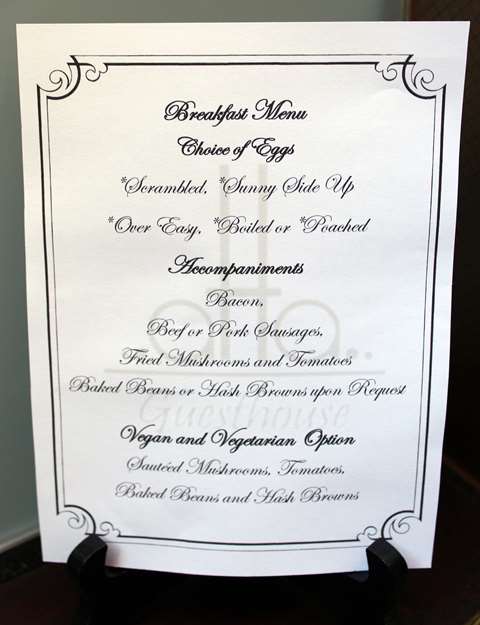 Breakfast Menu
Choice of Eggs
*Scrambled, *Sunny Side Up
*Over Easy, *Boiled or *Poached
Accompaniments
Bacon,
Beef or Pork Sausages,
Fried Mushrooms and Tomatoes
Baked Beans or Hash Browns upon Request
Guesthouse
Vegan and Vegetarian Option
Sauteéd Mushrooms, Tomatoes,
Baked Beans and Hash Browns